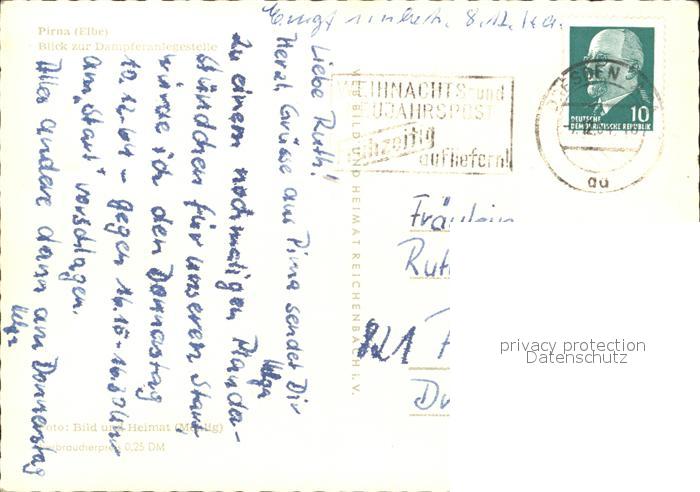 Pirna (Elbe)
Blick zur Dampferanlegestelle
8.12.
Liebe Ruth!
Herzl. Grüsse aus Pirna sendet Dir
Helga
Zu einem nochmaligen Plauder-
stündchen für unseren Start
würde ich den Donnerstag
10.12.64 – gegen 16.15-16.30 Uhr
am „Start“ vorschlagen.
Alles andere dann am Donnerstag
Helga
Foto: Bild und Heimat
Verbraucherpreis 0,25 DM
VEB BILD UND HEIMAT REICHENBACH i. V.
WEIHNACHTS- und
NEUJAHRSPOST
frühzeitig
aufliefern!
DRESDEN
au
10
DEUTSCHE
DEMOKRATISCHE REPUBLIK
Fräulein
Ruth
821
privacy protection
Datenschutz